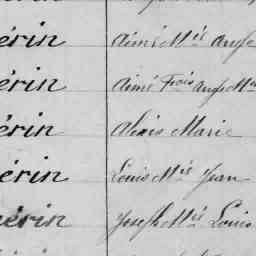 érin Aimé Mie Ange
érin Aimé Frois Ange Mie
érin Alexis Marie
érin Louis Mie Jean
érin Joseph Mie Louis